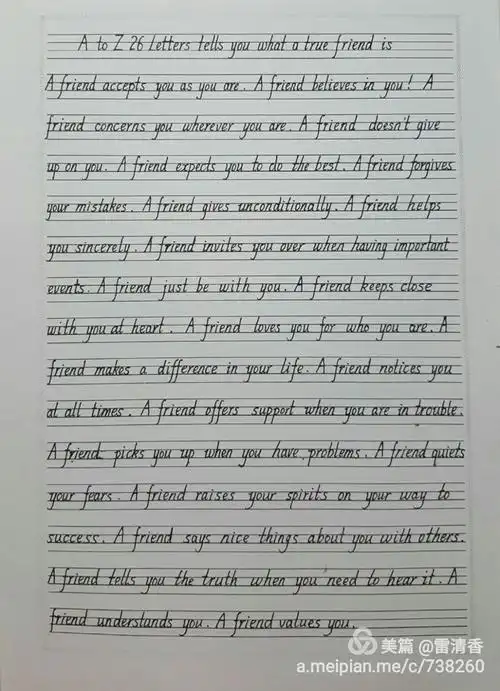 A to Z 26 letters tells you what a true friend is
A friend accepts you as you are. A friend believes in you! A
friend concerns you wherever you are. A friend doesn't give
up on you. A friend expects you to do the best. A friend forgives
your mistakes. A friend gives unconditionally. A friend helps
you sincerely. A friend invites you over when having important
events. A friend just be with you. A friend keeps close
with you at heart. A friend loves you for who you are. A
friend makes a difference in your life. A friend notices you
at all times. A friend offers support when you are in trouble.
A friend picks you up when you have problems. A friend quiets
your fears. A friend raises your spirits on your way to
success. A friend says nice things about you with others.
A friend tells you the truth when you need to hear it. A
friend understands you. A friend values you.
美篇 @雷清香
a.meipian.me/c/738260